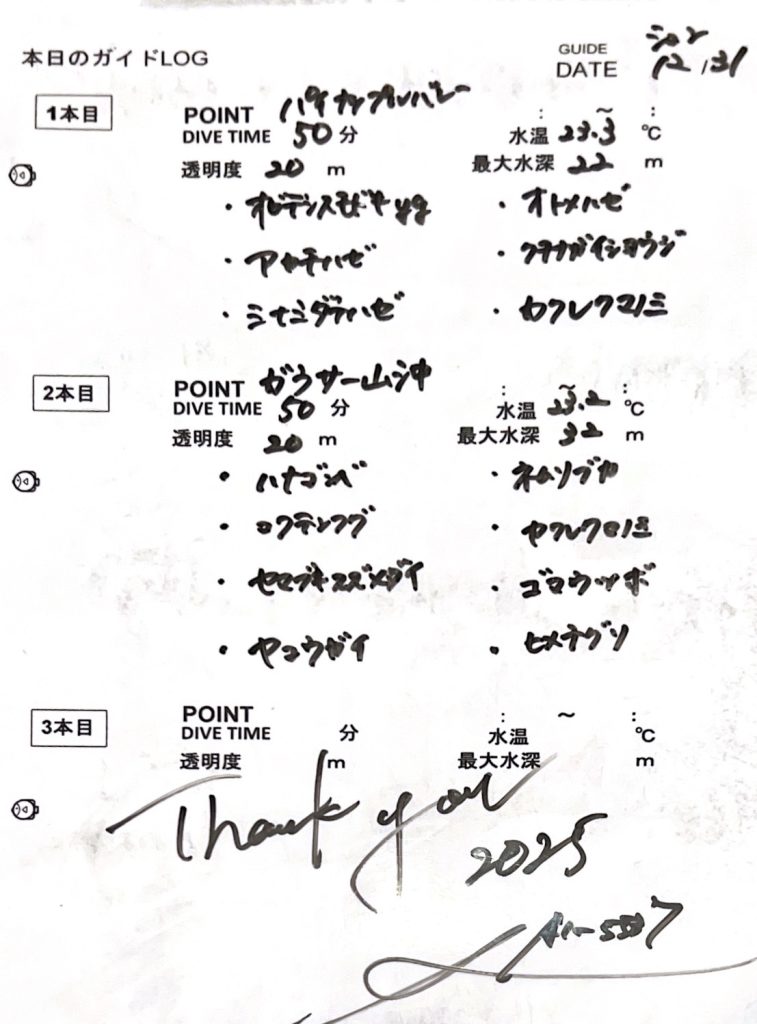 本日のガイドLOG
GUIDE ション
DATE 12/31
1本目
POINT パイナップルバレー : ~ :
DIVE TIME 50分 水温 23.3℃
透明度 20m 最大水深 22m
・オビテンスモドキyg ・オトメハゼ
・アカテハゼ ・クチナガイシヨウジ
・ミナミダテハゼ ・カクレクマノミ
2本目
POINT ガウサー山沖 : ~ :
DIVE TIME 50分 水温 23.2℃
透明度 20m 最大水深 32m
・ハナゴンベ ・ネムリブカ
・ロクテンフグ ・ヤクレクマノミ
・セナキルリスズメダイ ・ゴマウツボ
・ヤコウガイ ・ヒメテグリ
3本目
POINT : ~ :
DIVE TIME 分 水温 ℃
透明度 m 最大水深 m
Thank you
2025